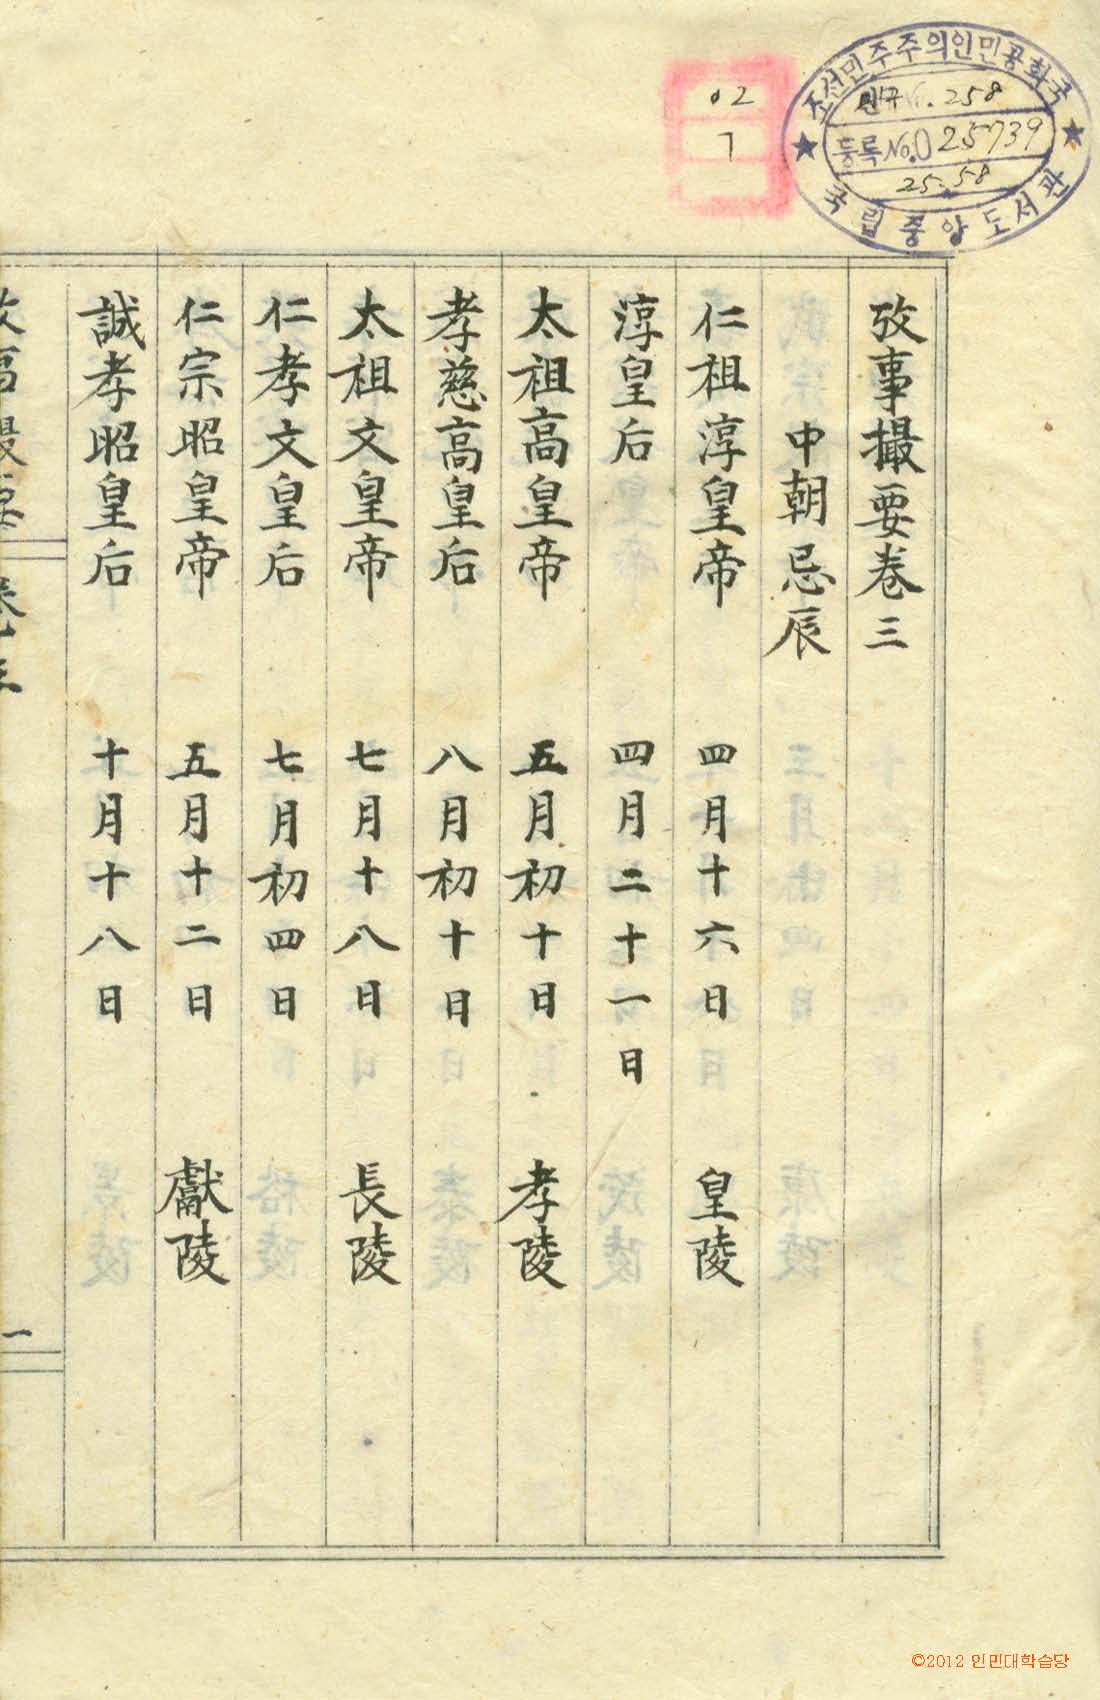 攷事撮要卷三
中朝忌辰
仁祖淳皇帝 四月十六日 皇陵
淳皇后 四月二十一日
太祖高皇帝 五月初十日 孝陵
孝慈高皇后 八月初十日
太祖文皇帝 七月十八日 長陵
仁孝文皇后 七月初四日
仁宗昭皇帝 五月十二日 獻陵
誠孝昭皇后 十月十八日
攷事撮要 卷三 一
02
7
조선민주주의인민공화국
258
등록No.025739
25.58
국립중앙도서관
©2012 인민대학습당